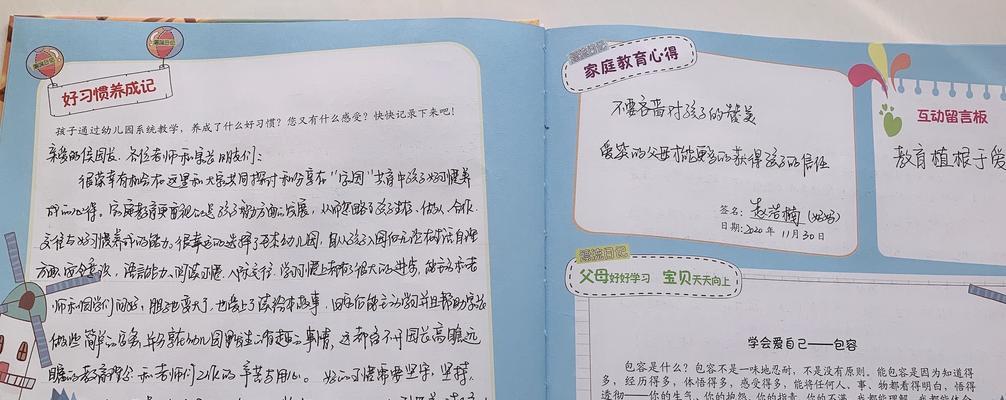 好习惯养成记
孩子通过幼儿园系统教学，养成了什么好习惯？您又有什么感受？快快记录下来吧！
亲爱的 园长、各位老师和家长朋友们：
很荣幸有机会在这里和大家共同探讨和分享在“家园”共育中孩子好习惯养
成的心得。家庭教育更重视的是孩子 方面的发展，从而忽略了孩子 、做人、合作、
交往与好习惯养成的能力。很幸运的选择了 幼儿园，自从孩子入园 无论在生活自理
方面、安全意识、语言能力、阅读习惯、人际交往、学习习惯上都有很大的进步，能主动
师和同学们问好，胆子也变大了，也爱上了读绘本故事，回家后能主动 并且帮助家长
做些简单的家务，并分享在幼儿园里发生的有趣的事情，这都离不开园长高瞻远
瞩的教育理念和老师们工作的辛苦与用心。好的习惯需要坚守，坚持，
家庭教育心得
不要吝啬对孩子的赞美
爱笑的父母才能更多的获得孩子的信任
签名： (妈妈)
日期：2020年11月30日
互动留言板
教育植根于爱
父母好好学习 宝贝天天向上
学会爱自己——包容
包容是什么？包容不是一味地忍耐，不是没有原则。能包容是因为知道得
多，经历得多，体悟得多，感受得多，能将任何人、事、物都看得明白，悟得
透彻——你的生气、你的抱怨、你的指责、你的不满，我都能理解，我都能体会